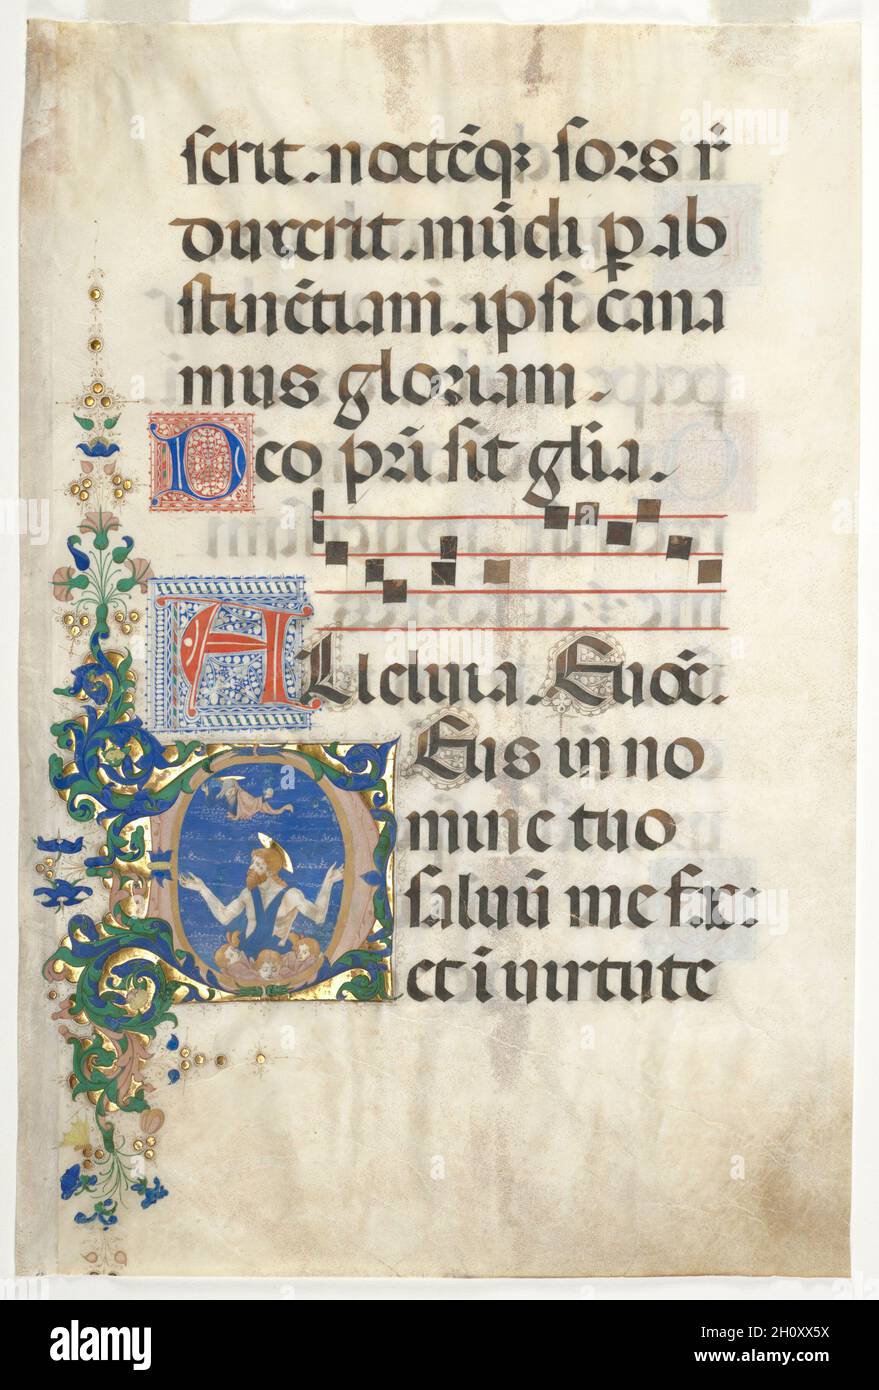 scrit . noctēq; sors r̄
duxerit . mūdi ꝑ ab
stinētiam . ipsi cāna
mus gloriam .
Deo pr̄i sit gl̄ia .
Alleluia . Euoē .
Deus in no
mine tuo
saluū me fac:
et ī uirtute
alamy
Image ID: 2H0XX5X
www.alamy.com